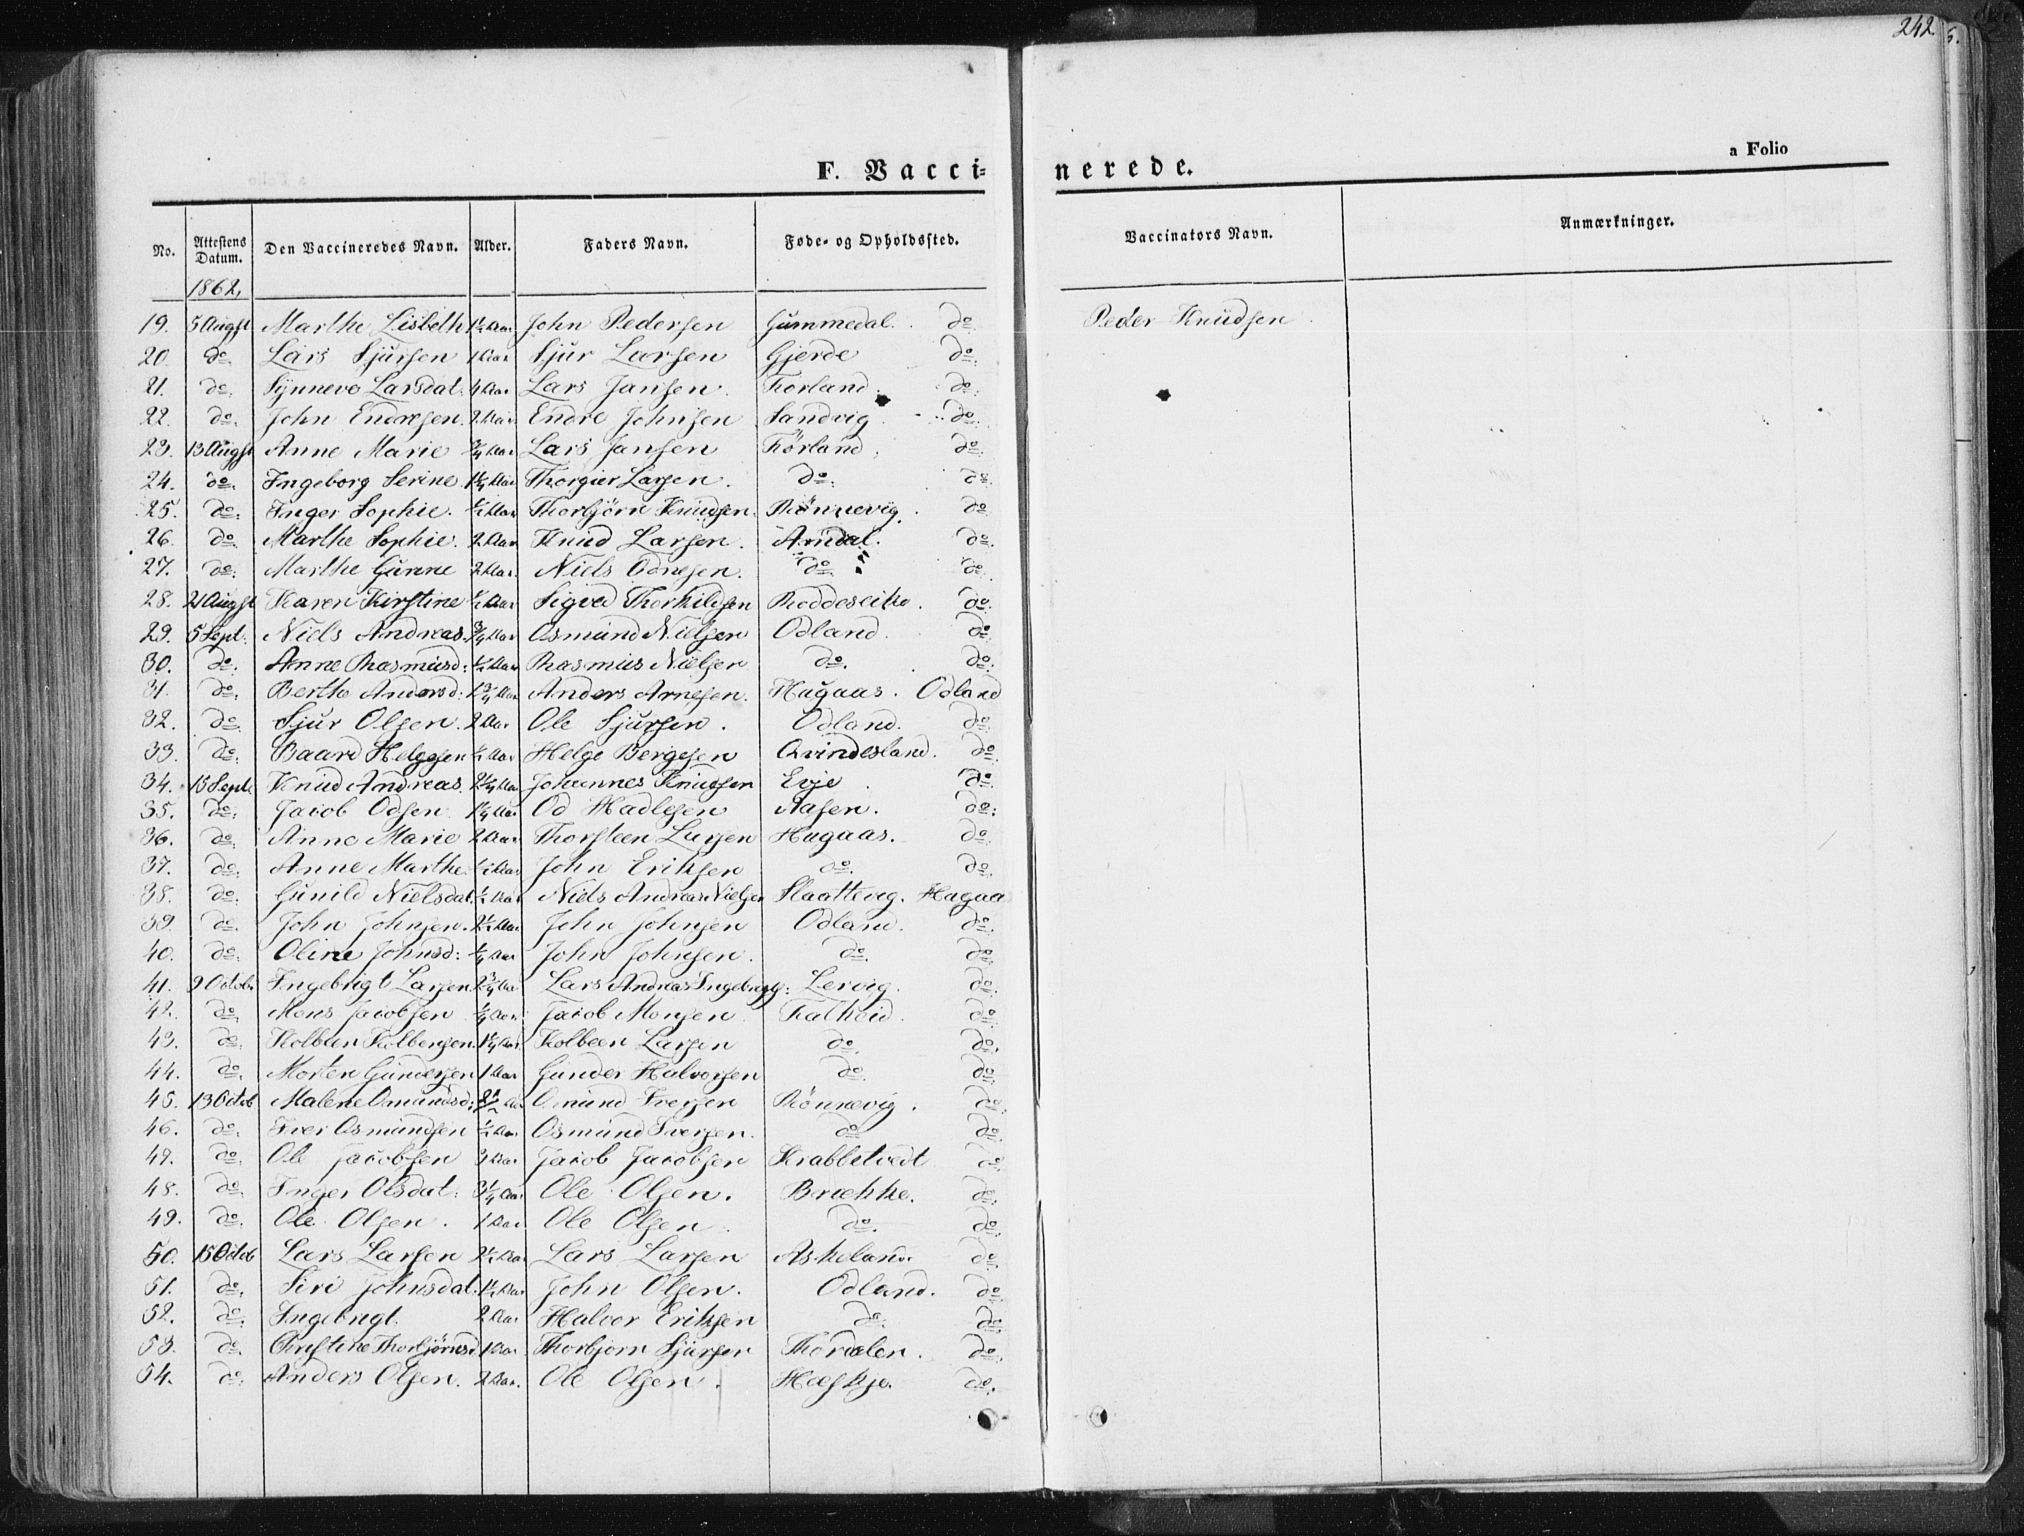 242
a Folio
F. Vacci=
nerede.
No. Attestens Datum. Den Vaccineredes Navn. Alder. Faders Navn. Føde- og Opholdssted. Vaccinators Navn. Anmærkninger.
1862,
19. 5 Augst Marthe Lisbeth 1½ Aar John Pedersen Gummedal. do Peder Knudsen
20. do Lars Sjursen 1 Aar Sjur Larsen Gjerde do
21. do Synneve Larsdat. 4 Aar Lars Jansen. Førland. do
22. do. John Endresen. 2 Aar Endre Johnsen Sandvig do
23. 13 Augst Anne Marie ¾ Aar Lars Jansen Førland. do
24. do. Ingeborg Serine 1¼ Aar Thorgier Larsen. do. do.
25. do. Inger Sophie. ½ Aar Thorbjörn Knudsen Rönnevig. do
26. do Marthe Sophie. 2 Aar Knud Larsen. Arndal. do.
27. do. Marthe Gurine 2 Aar. Niels Odnesen. do do.
28. 21 Augst Karen Kirstine ½ Aar Sigved Thorkildsen Roddeseike. do.
29. 5 Sept. Niels Andreas ¾ Aar Osmund Nielsen Odland. do
30. do. Anne Rasmusd: ½ Aar Rasmus Nielsen do. do.
31. do. Berthe Andersd: 1¾ Aar Anders Arnesen. Hagaas. Odland
32. do Sjur Olsen. 2 Aar Ole Sjursen. Odland. do
33. do. Baard Helgesen ½ Aar Helge Bergesen Qvindesland. do
34. 15 Sept. Knud Andreas 2¼ Aar Johannes Knudsen Evje. do.
35. do. Jacob Odsen 1¼ Aar Od Hadlesen Aasen. do:
36. do. Anne Marie 2 Aar Thorsteen Larsen Hagaas. do
37. do. Anne Marthe ½ Aar John Eriksen do. do.
38. do. Gunild Nielsdat. ½ Aar Niels Andreas Nielsen Slaattevig. Hagaa
39. do. John Johnsen. 2½ Aar John Johnsen Odland. do.
40. do. Oline Johnsd: ¼ Aar John Johnsen. do. do.
41. 9 Octobr Ingebrigt Larsen 2¾ Aar Lars Andreas Ingebrigts: Lervig. do.
42. do. Mons Jacobsen ¼ Aar Jacob Monsen Falkeid. do.
43. do. Kolbeen Kolbensen. 1¼ Aar Kolbeen Larsen do. do.
44. do. Morten Gundersen 1 Aar Gunder Halvorsen do. do.
45. 13 Octob Malene Omundsd: Aar Omund Iversen Rönnevig. do.
46. do. Iver Osmundsen ½ Aar Osmund Iversen. do do.
47. do. Ole Jacobsen 3 Aar Jacob Jacobsen Krabbetvedt do.
48. do. Inger Olsdat: 3¼ Aar Ole Olsen. Brække. do.
49. do. Ole Olsen. 1 Aar Ole Olsen. do. do.
50. 15 Octob Lars Larsen 2½ Aar Lars Larsen Askeland. do
51. do. Siri Johnsdat. 1½ Aar John Olsen. Odland. do
52. do. Ingebrigt. 2 Aar Halvor Eriksen do. do.
53. do. Christine Thorbjørnsd. 1 Aar Thorbjorn Sjursen Thordalen. do.
54. do. Anders Olsen. 2 Aar. Ole Olsen. do.